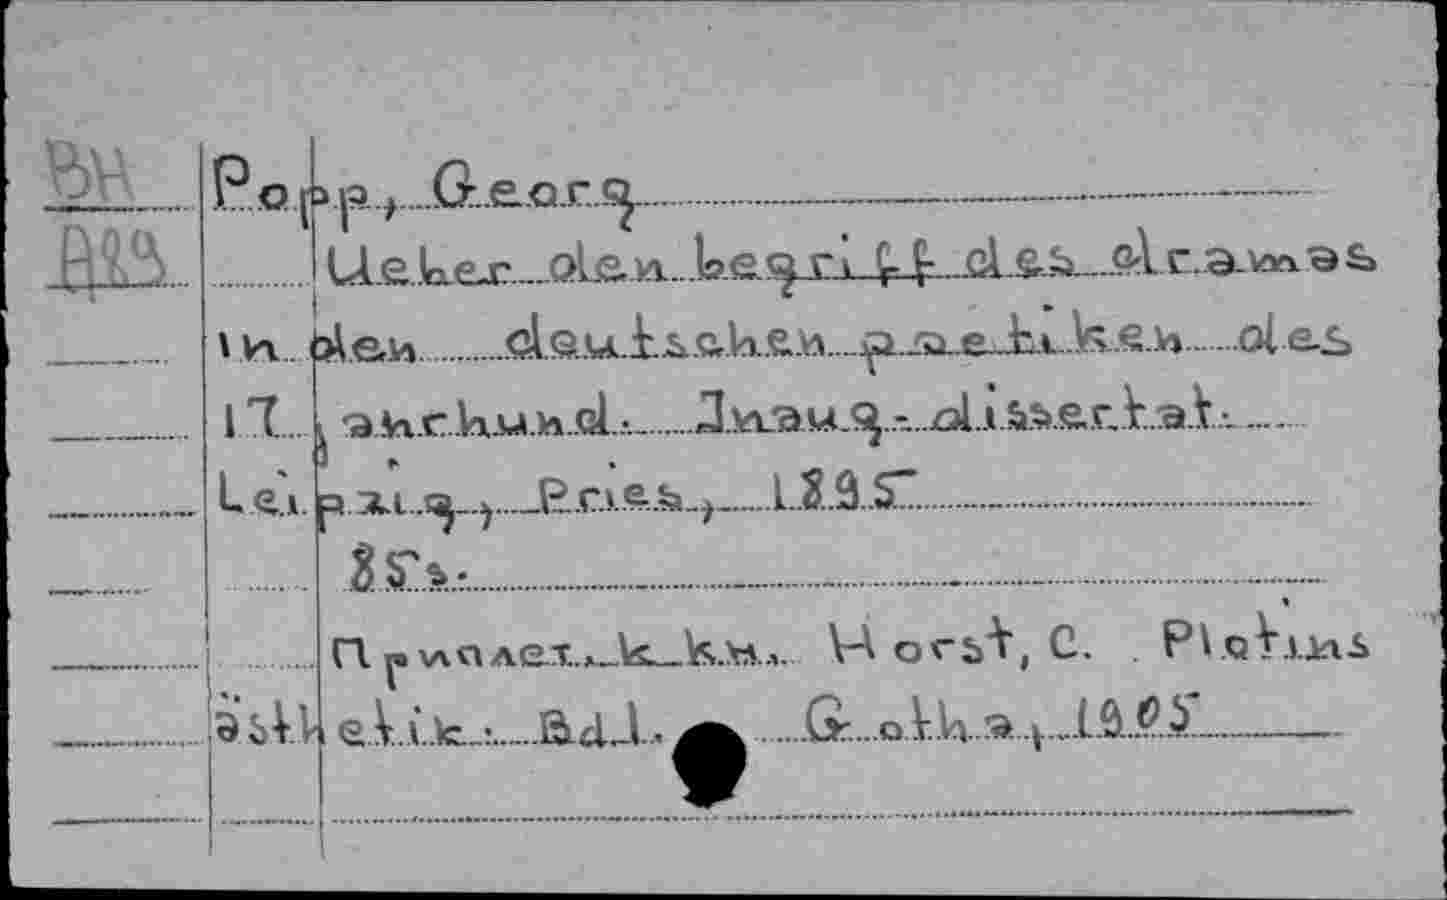 ВН Popp, Georg
Ueber den begriff des dramas
in den deutschen poetiken des
17. ahrhund. Inaug.-dissertat.
Leipzig, Pries, 1895
85 s.
Приплет. к кн. Horst, C. Plotins
ästhetik. Bd 1. Gotha, 1905